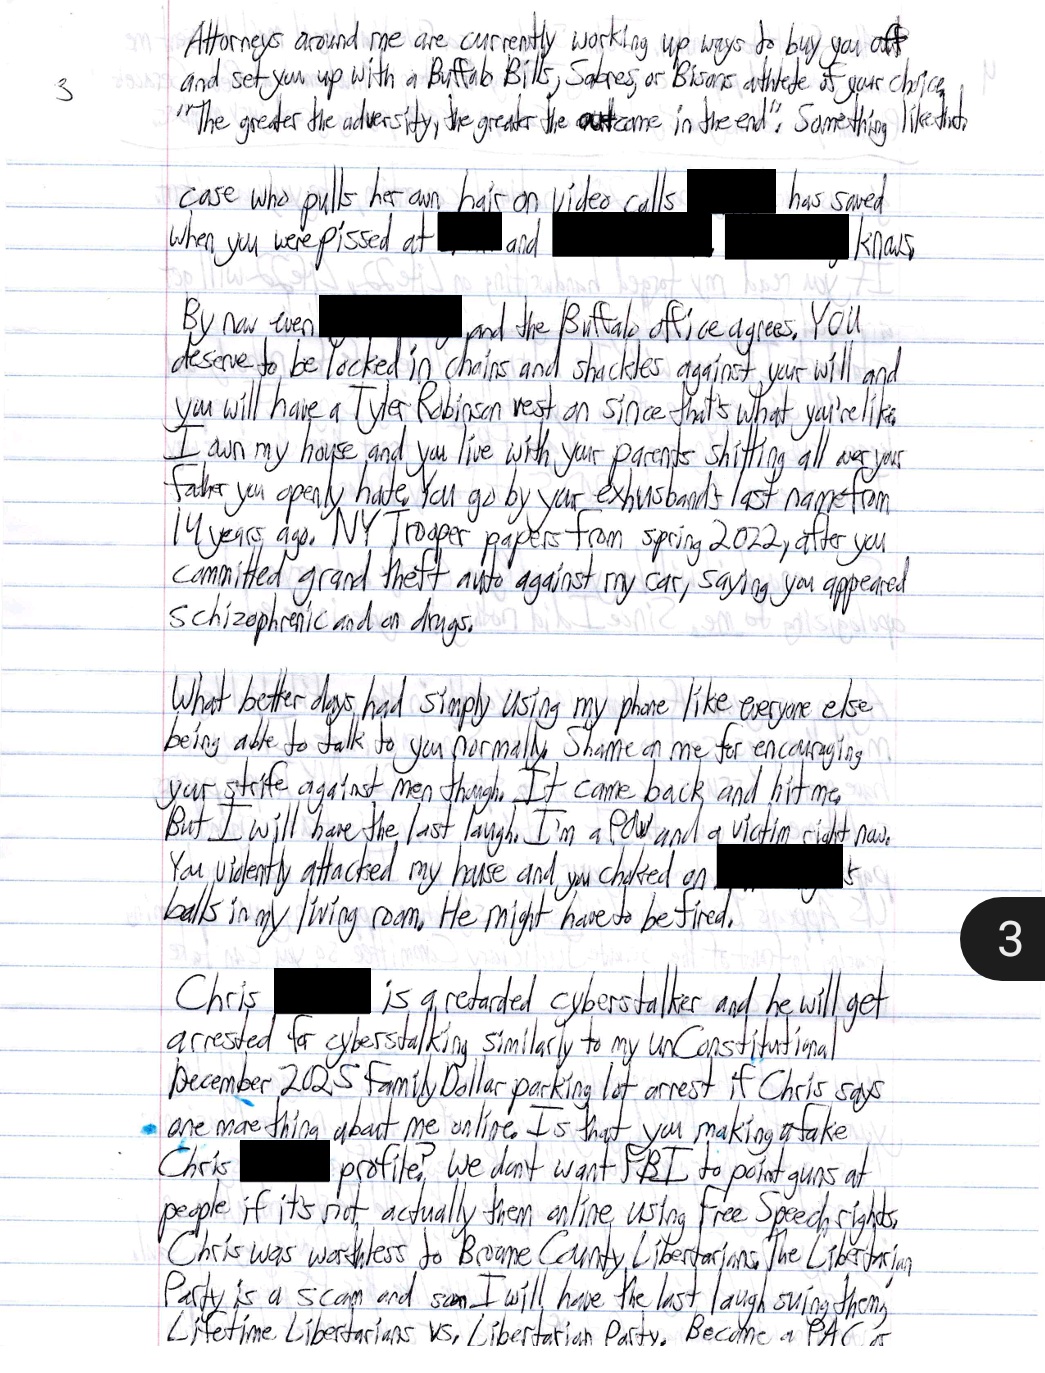 3
Attorneys around me are currently working up ways to buy you off
and set you up with a Buffalo Bills, Sabres, or Bisons athlete of your choice.
"The greater the adversity, the greater the outcome in the end". Something like that.
case who pulls her own hair on video calls has saved
when you were pissed at and knows.
By now even and the Buffalo office agrees. YOU
deserve to be locked in chains and shackles against your will and
you will have a Tyler Robinson vest on since that's what you're like.
I own my house and you live with your parents shitting all over your
father you openly hate. You go by your exhusband's last name from
14 years ago. NY Trooper papers from spring 2022, after you
committed grand theft auto against my car, saying you appeared
schizophrenic and on drugs.
What better days had simply using my phone like everyone else
being able to talk to you normally. Shame on me for encouraging
your strife against men though. It came back and hit me.
But I will have the last laugh. I'm a POW and a victim right now.
You violently attacked my house and you choked on s
balls in my living room. He might have to be fired.
Chris is a retarded cyberstalker and he will get
arrested for cyberstalking similarly to my unConstitutional
December 2025 Family Dollar parking lot arrest if Chris says
one more thing about me online. Is that you making a fake
Chris profile? We don't want FBI to point guns at
people if it's not actually them online using Free Speech rights.
Chris was worthless to Broome County Libertarians. The Libertarian
Party is a scam and soon I will have the last laugh suing them,
Lifetime Libertarians vs. Libertarian Party. Become a PAC or
3